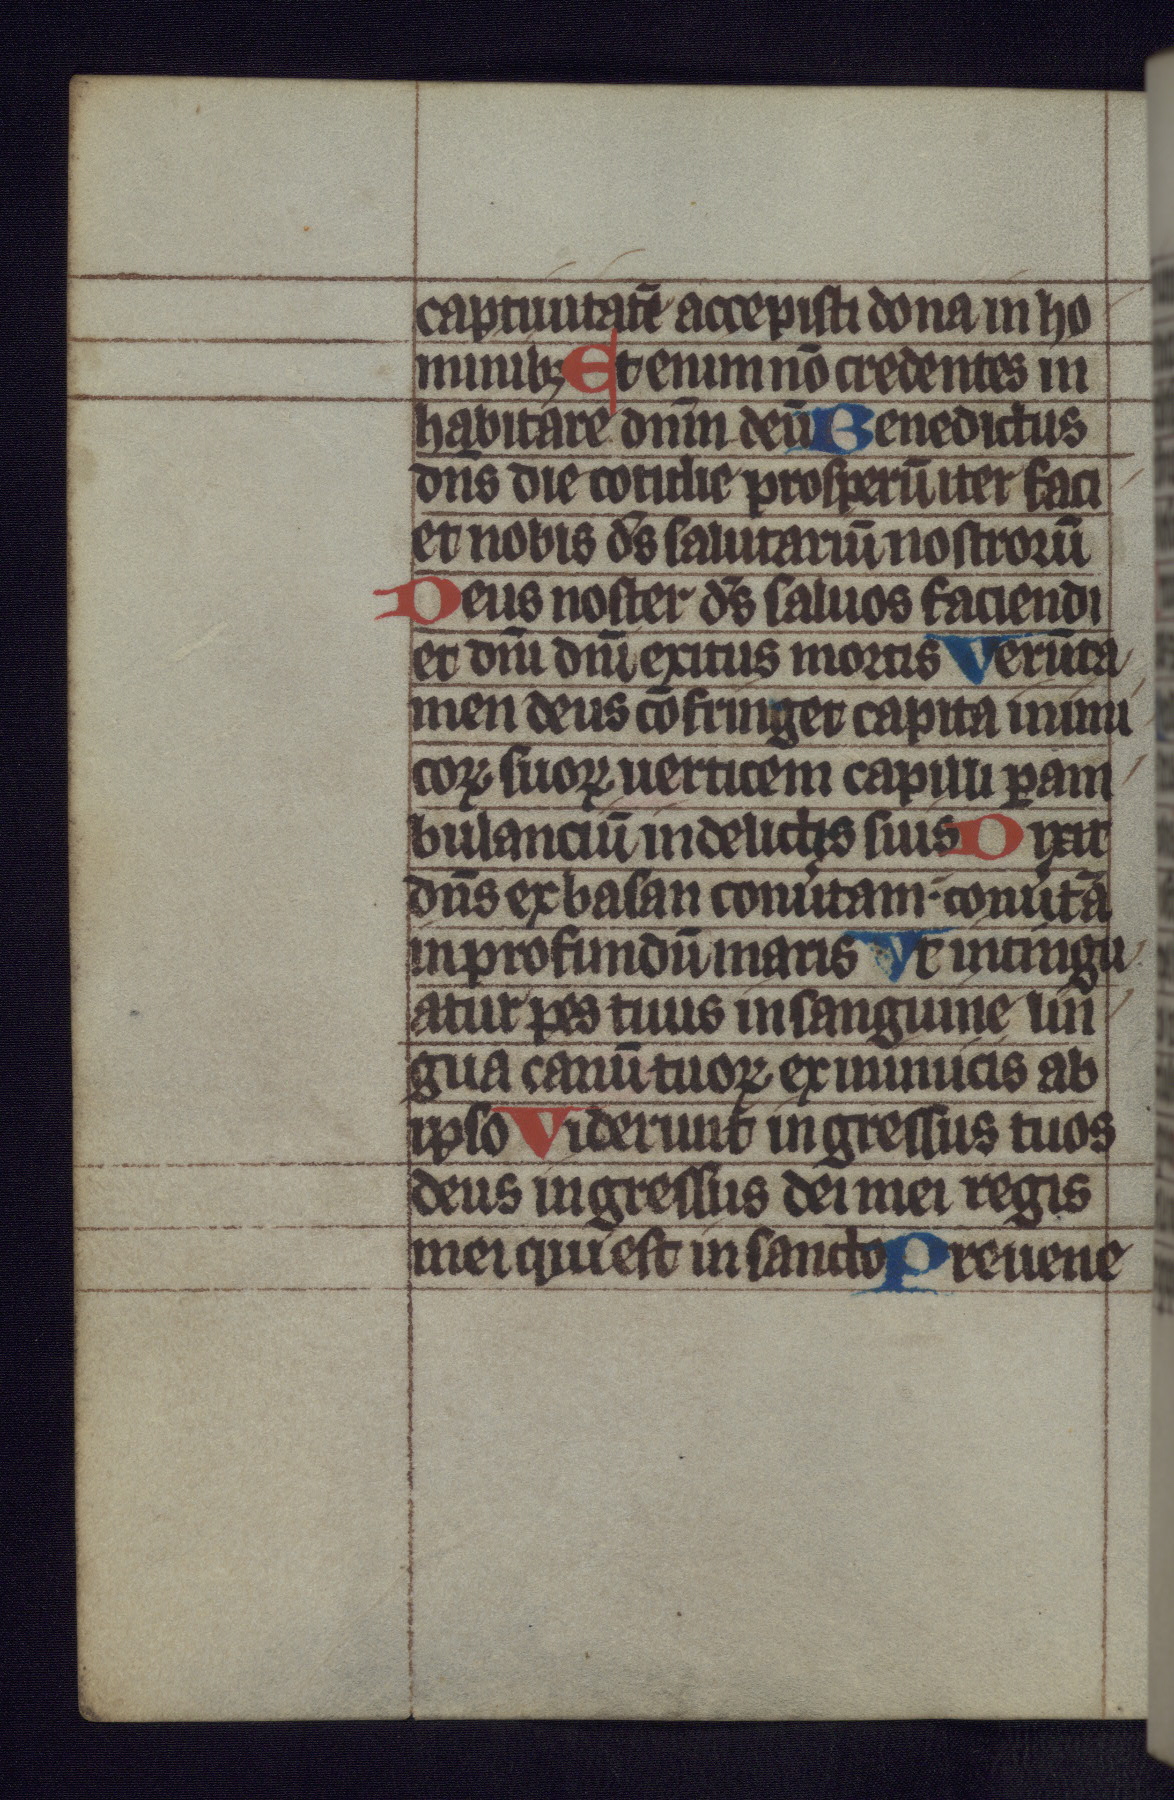 captiuitatē accepisti dona in ho
minibꝫ Et enim nō credentes in
habitare dnm̄ deū Benedictus
dn̄s die cotidie prosperū iter faci
et nobis ds̄ salutariū nostrorū
Deus noster ds̄ saluos faciendi
et dn̄i dn̄i exitus mortis Verūta
men deus cōfringet capita inimi
coꝝ suoꝝ uerticem capilli ꝑam
bulanciū in delictis suis Dixit
dn̄s ex basan conūtam conūtā
in profundū maris Vt intingu
atur pes tuus in sanguine lin
gua canū tuoꝝ ex inimicis ab
ipso Viderunt ingressus tuos
deus ingressus dei mei regis
mei qui est in sancto Preuene